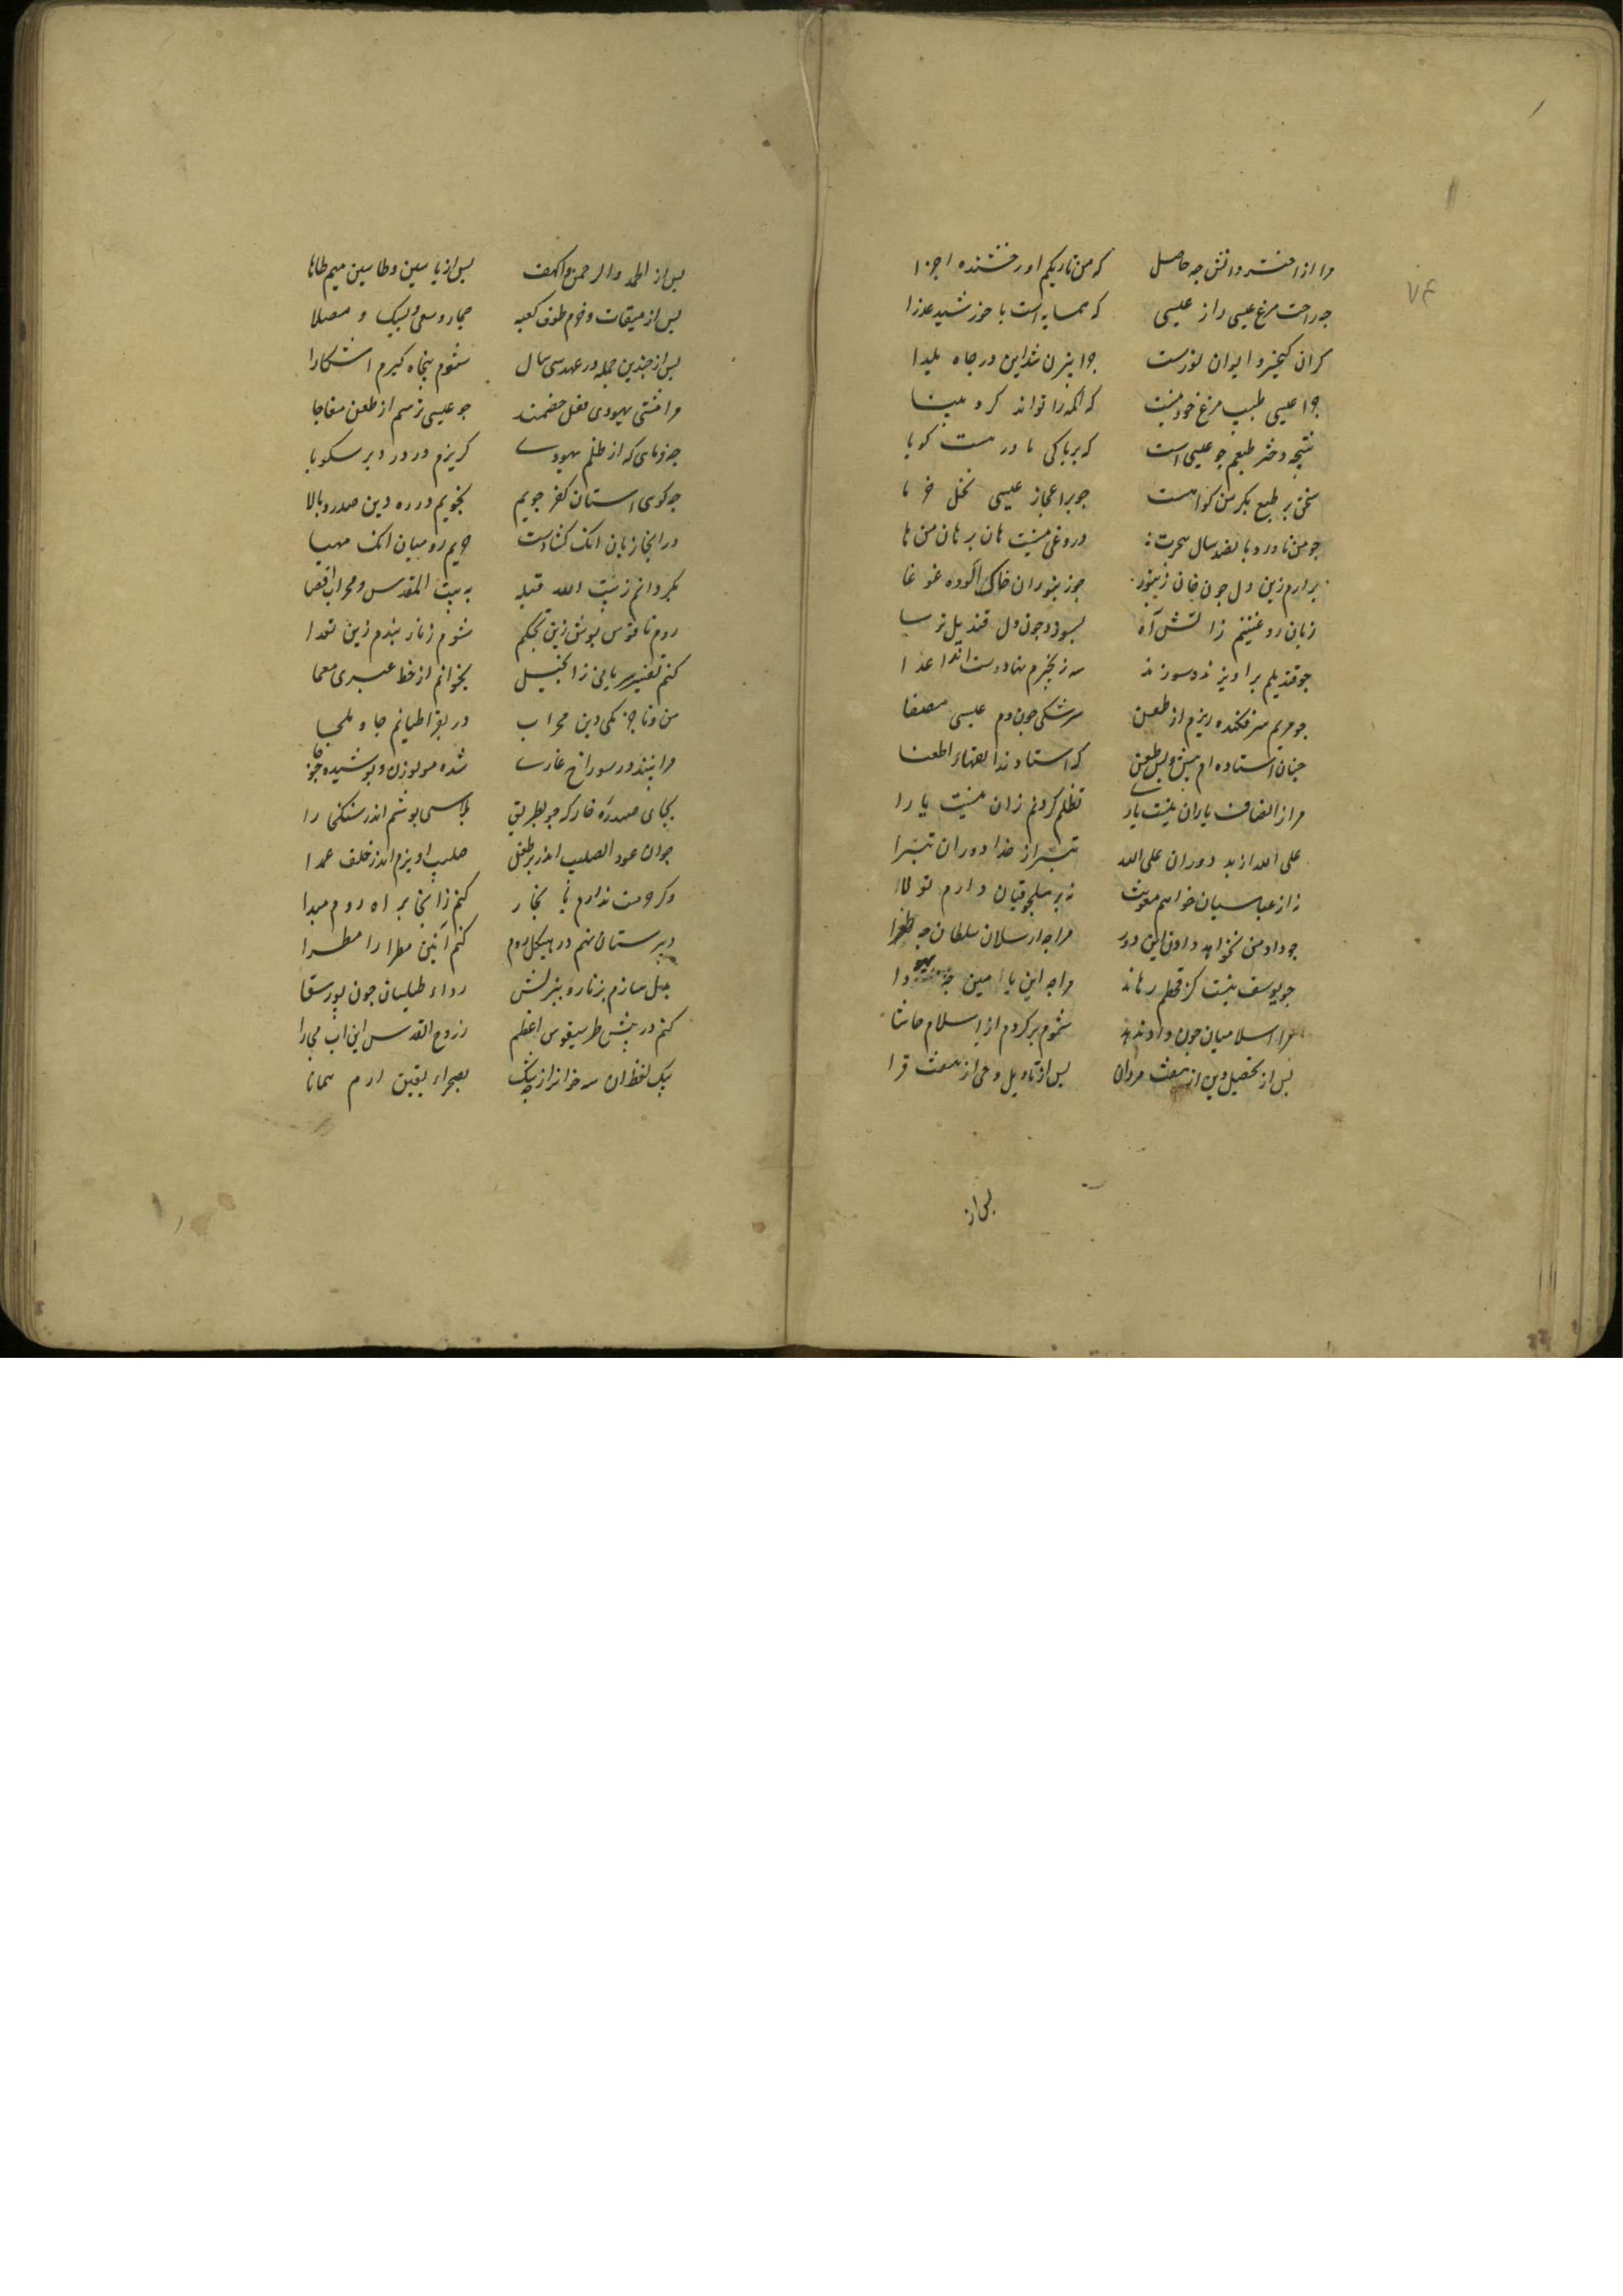 ۷۴
مرا از اختر دانش چه حاصل که من تاریکم او رخشنده اجزا
چه راحت مرغ عیسی را ز عیسی که همسایه است با خورشید عذرا
گر آن کیخسرو ایوان نورست چرا بیژن شد این در چاه یلدا
چرا عیسی طبیب مرغ خود نیست که اکمه را تواند کرد بینا
نتیجه دختر طبعم چو عیسی است که بر پاکی مادر هست گویا
سخن بر طبع بکر من گواهست چو بر اعجاز عیسی نخل خرما
چو من ناورد پانصد سال هجرت دروغی نیست هان برهان من ها
برارم زین دل چون خان زنبور چو زنبوران خاک آلوده غوغا
زبان روغنینم ز آتش آه بسوزد چون دل قندیل ترسا
چو قندیلم بر آویزند و سوزند سه زنجیرم نهادست اند اعدا
چو مریم سرفکنده ریزم از طعن سرشکی چون دم عیسی مصفا
چنان استاده ام پیش و پس طعن که استادند الفهاء اطعنا
مرا ز انصاف یاران نیست یاری تظلم کردنم زان نیست یارا
علی الله از بد دوران علی الله تبرا از خدا دوران تبرا
نه از عباسیان خواهم معونت نه بر سلجوقیان دارم تولا
چو داد من نخواهد داد این دور مرا چه ارسلان سلطان چه طغرا
چو یوسف نیست کز قحطم رهاند مرا چه ابن یامین چه یهودا
مرا اسلامیان چون داد ندهند شوم برگردم از اسلام حاشا
پس از تحصیل دین از هفت مردان پس از تاویل وحی از هفت قرا
پس از
پس از الحمد والرحمن والکهف پس از یاسین و طاسین میم طاها
پس از میقات و حرم طوف کعبه جمار و سعی و لبیک و مصلا
پس از چندین چله در عهد سی سال شوم پنجاه گیرم اشکارا
مرا مشتی یهودی فعل خصمند چو عیسی ترسم از طعن مفاجا
چه فرمایی که از ظلم یهودی گریزم در در دیر سکوبا
چه گویی استان کفر جویم نجویم در ره دین صدر و بالا
در ابخازیان اینک گشادست حریم رومیان اینک مهیا
بگردانم ز بیت الله قبله به بیت المقدس و محراب اقصی
روم ناقوس بوسم زین تحکم شوم زنار بندم زین تعدا
کنم تفسیر سریانی ز انجیل بخوانم از خط عبری معما
من و ناجرمکی و دیر مخران در بقراطیانم جا و ملجا
مرا بینند در سوراخ غاری شده مولوزن و پوشیده چوخا
بجای صدره خارا چو بطریق پلاسی پوشم اندر سنگ خارا
چو آن عود الصلیب اندر بر طفل صلیب آویزم اندر حلق عمدا
وگر حرمت ندارندم با بخاز کنم ز آنجا براه روم مبدا
دبیرستان نهم در هیکل روم کنم آیین مطرا را مطرا
بدل سازم بزنار و ببرنس رداء طیلسان چون پورسقا
کنم در پیش طرسیقوس اعظم ز روح القدس ابن اب مجارا
بیک لفظ آن سه خوان را از چه شک بصحراء یقین آرم همانا